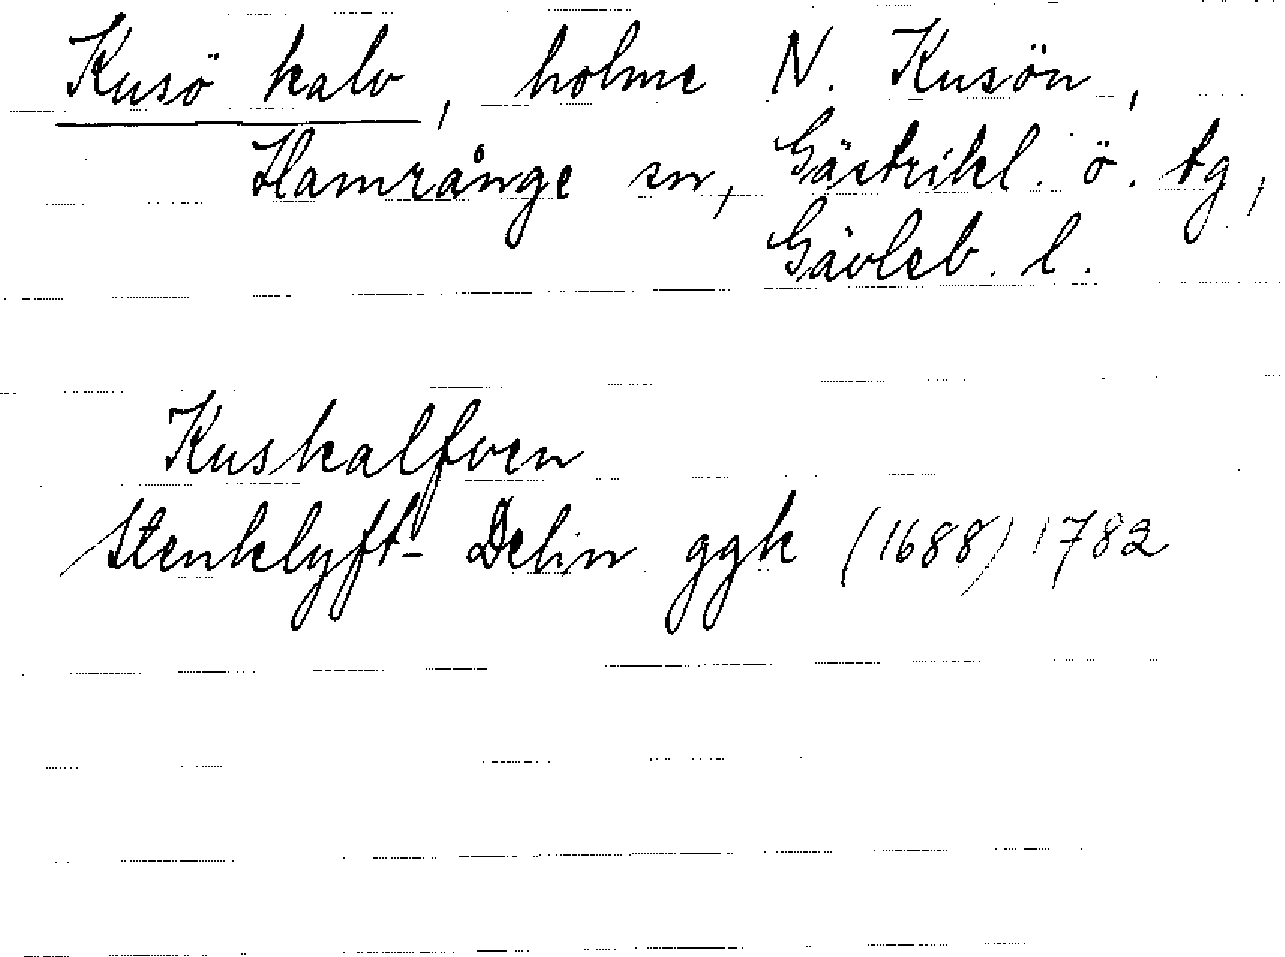 Kusö kalv, holme N. Kusön,
Hamrånge sn, Gästrikl. ö. tg,
Gävleb. l.
Kuskalfven
Stenklyft- Delin ggk (1688) 1782